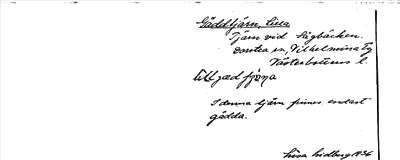 Gäddtjärn, Lilla
Tjärn vid Sågbäcken.
Dorotea sn, Vilhelmina Tg
Västerbottens l.
I denna tjärn finnes endast
gädda.
Lisa Lidberg 1934